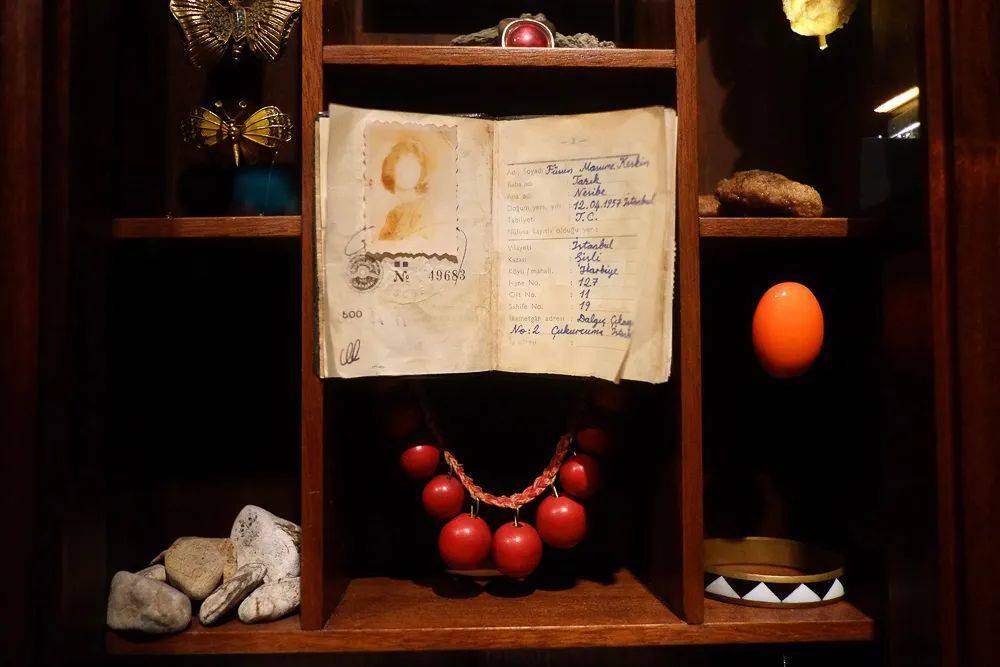 № 49683
500
— 3 —
Adı, Soyadı Füsun Masume Keskin
Baba adı Tarık
Ana adı Nesibe
Doğum yeri, yılı : 12.04.1957 İstanbul
Tabiiyeti : T.C.
Nüfusa kayıtlı olduğu yer :
Vilayeti : İstanbul
Kazası : Şişli
Köyü / mahall. : Harbiye
Hane No. : 127
Cilt No. : 11
Sahife No. : 19
İkametgâh adresi : Dalgıç Çıkmazı
No: 2 Çukurcuma